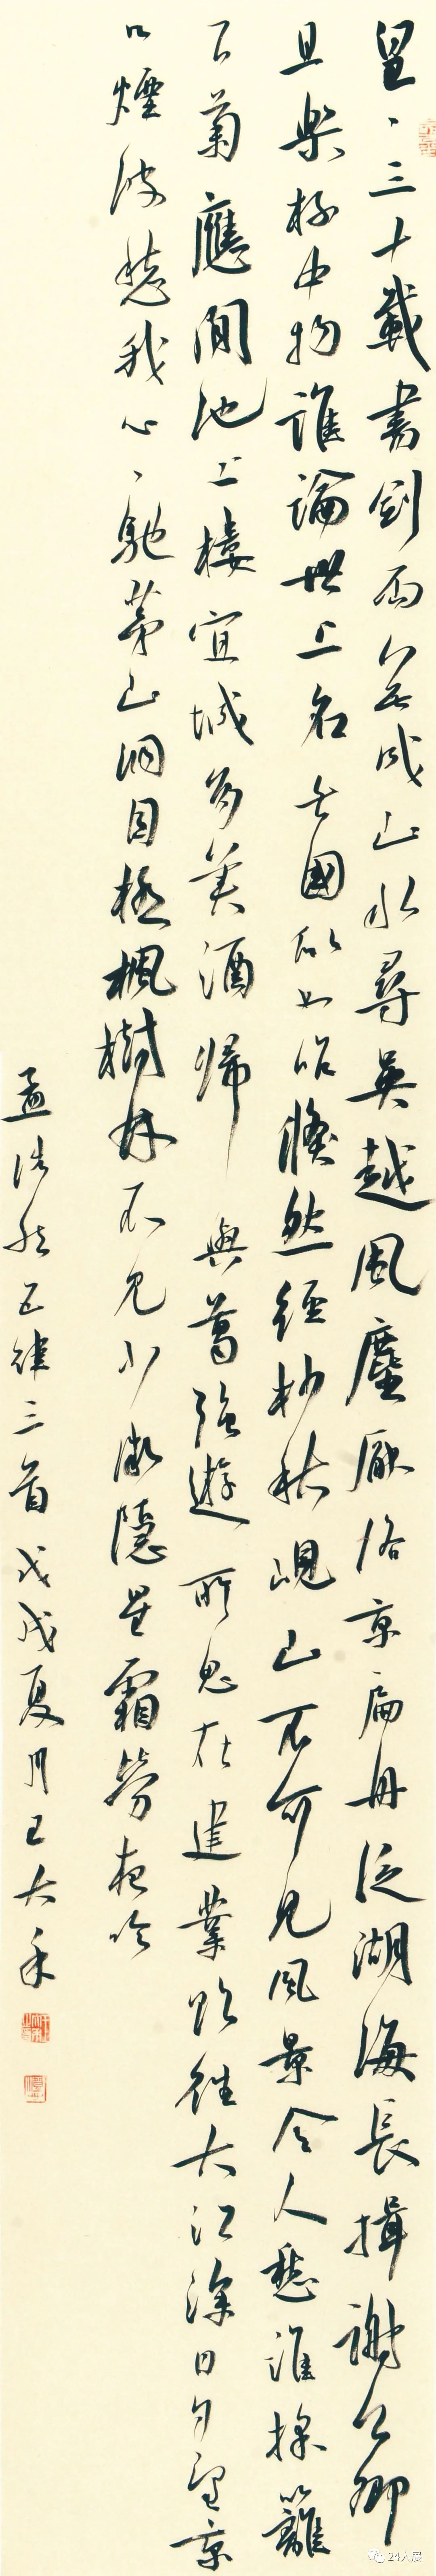 皇、三十載書劍兩無成山水尋吳越風塵厭洛京扁舟泛湖海長揖謝公卿
且樂杯中物誰論世上名去國似如昨倏然經杪秋峴山不可見風景令人愁誰採籬
下菊應閒池上樓宜城多美酒歸與葛強遊所思在建業欲往大江深日夕望京
口煙波愁我心、馳茅山洞目極楓樹林不見少微隱星霜勞夜吟
孟浩然五律三首戊戌夏月王大禾
24人展